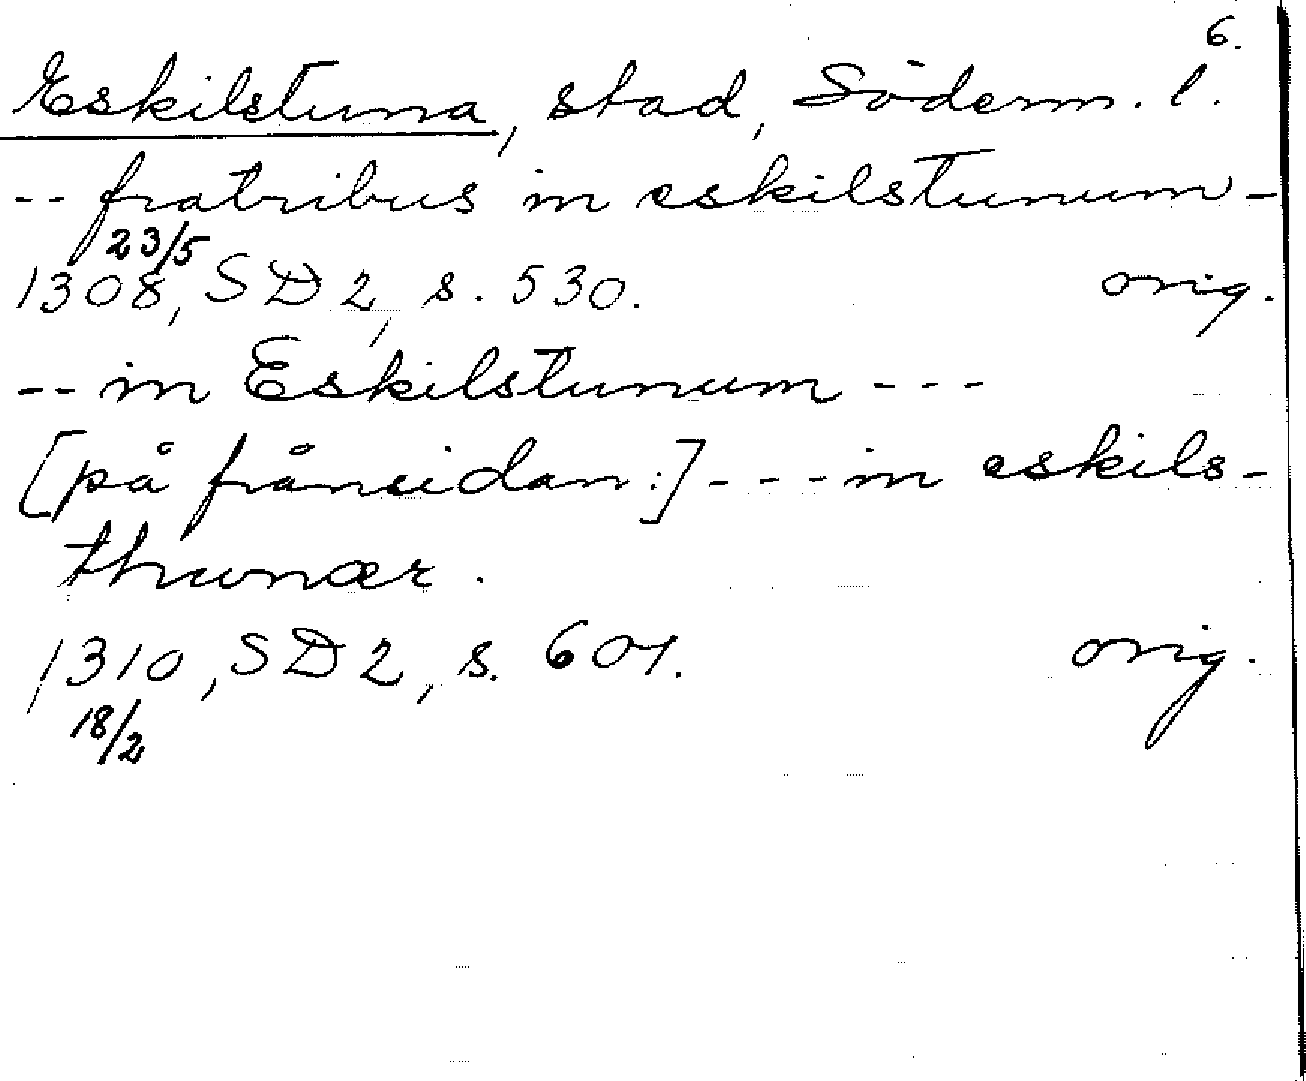 6.
Eskilstuna, stad, Söderm. l.
-- fratribus in eskilstunum -
23/5
1308, SD 2, s. 530. orig.
-- in Eskilstunum ---
[på frånsidan:] --- in eskils-
thunær.
1310, SD 2, s. 601. orig.
18/2